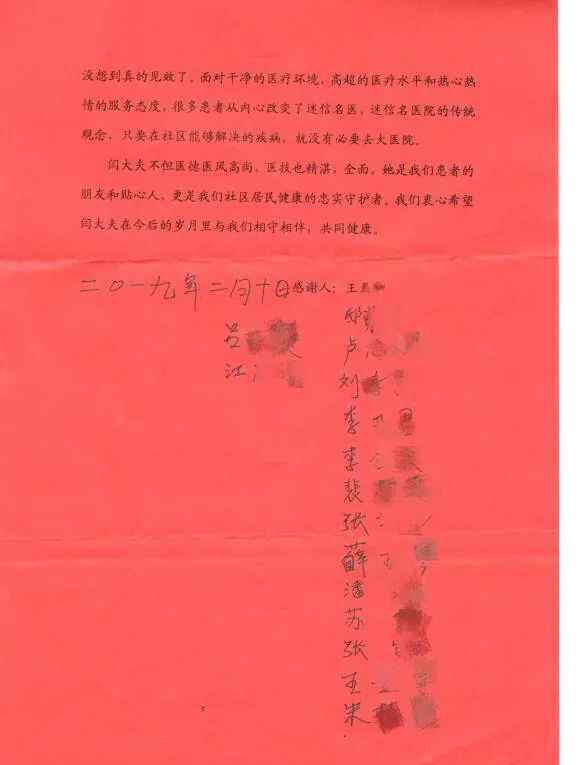 没想到真的见效了。面对干净的医疗环境、高超的医疗水平和热心热
情的服务态度，很多患者从内心改变了迷信名医，迷信名医院的传统
观念，只要在社区能够解决的疾病，就没有必要去大医院。
闫大夫不但医德医风高尚，医技也精湛，全面。她是我们患者的
朋友和贴心人，更是我们社区居民健康的忠实守护者。我们衷心希望
闫大夫在今后的岁月里与我们相守相伴，共同健康。
二〇一九年二月十日感谢人：王
邸
吕
卢
江
刘
李
李
裴
张
薛
潘
苏
张
王